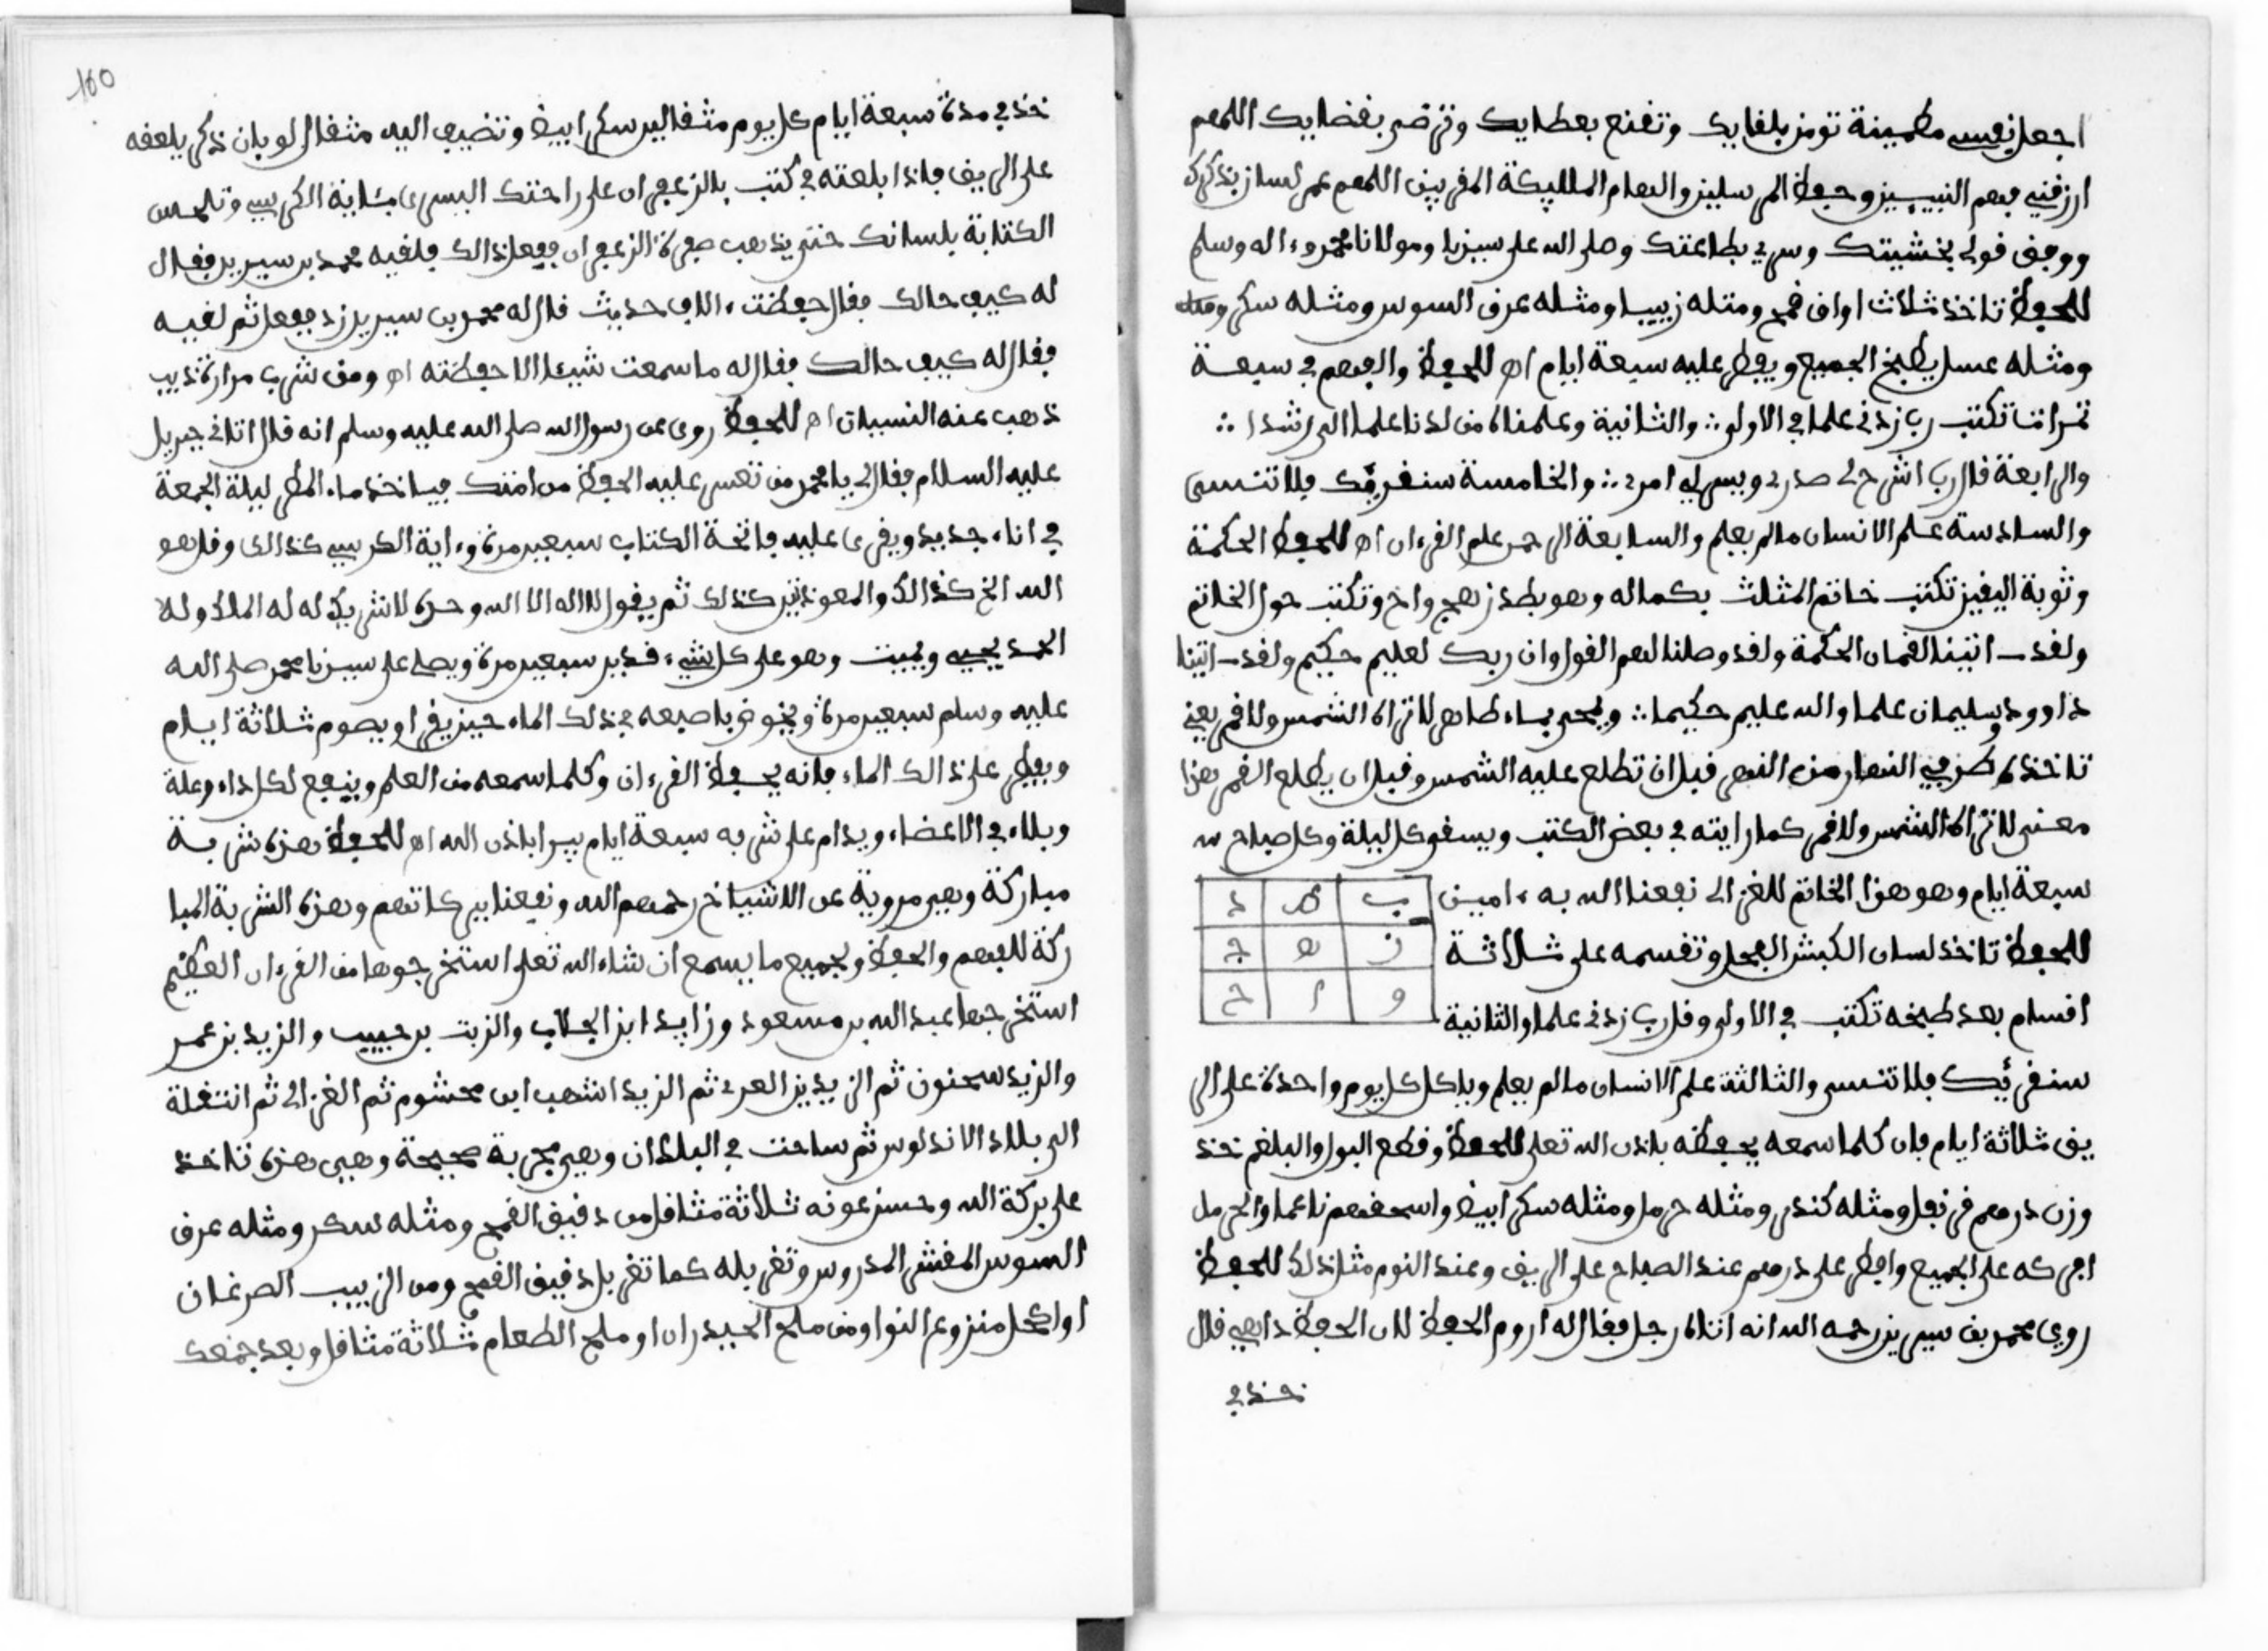 اجعل نفسي مطمينة تومن بلقايك وتقنع بعطايك وترضى بقضايك اللهم
ارزقني فهم النبيين وحفظ المرسلين والهام الملايكة المقربين اللهم عمر لساني بذكرك
ووفق قولي بخشيتك وسري بطاعتك وصلى الله على سيدنا ومولانا محمد وءاله وسلم
للحفظ تاخذ ثلاث اواق قمح ومثله زبيبا ومثله عرق السوس ومثله سكر ومثله
ومثله عسل يطبخ الجميع ويفطر عليه سبعة ايام اه للحفظ والفهم في سبعة
تمرات تكتب رب زدني علما في الاولى والثانية وعلمناه من لدنا علما الى رشدا
والرابعة قال رب اشرح لي صدري ويسر لي امري والخامسة سنقريك فلا تنسى
والسادسة علم الانسان مالم يعلم والسابعة الرحمن علم القرءان اه للحفظ الحكمة
وثوبة اليقين تكتب خاتم المثلث بكماله وهو بطد زهج واح وتكتب حول الخاتم
ولقد اتينا لقمان الحكمة ولقد وصلنا لهم القول وان ربك لعليم حكيم ولقد اتينا
داوود وسليمان علما والله عليم حكيما ويمحى بماء طاهر لا تراه الشمس ولا قمر يعني
تاخذه طرفي النهار من النهر قبل ان تطلع عليه الشمس وقبل ان يطلع القمر هذا
معنى لا تراه الشمس ولا قمر كما رايته في بعض الكتب ويسقى كل ليلة وكل صباح
سبعة ايام وهو هذا الخاتم للغزالي نفعنا الله به ءامين
ب ط د
ز ه ج
و ا ح
للحفظ تاخذ لسان الكبش الفحل وتقسمه على ثلاثة
اقسام بعد طبخه تكتب في الاولى وقل رب زدني علما والثانية
سنقريك فلا تنسى والثالثة علم الانسان مالم يعلم وياكل كل يوم واحدة على الر
يق ثلاثة ايام فان كلما سمعه يحفظه باذن الله تعلى للحفظ وقطع البول والبلغم خذ
وزن درهم قرنفل ومثله كندر ومثله حرمل ومثله سكر ابيض واسحقهم ناعما والحرمل
افركه على الجميع وافطر على درهم عند الصباح على الريق وعند النوم مثل ذلك للحفظ
روي محمد بن سيرين رحمه الله انه اتاه رجل فقال له اروم الحفظ لان الحفظ دابي قال
خذ في
100
خذ في مدة سبعة ايام كل يوم مثقالين سكر ابيض وتضيف اليه مثقال لوبان ذكر يلعقه
على الريق فاذا بلعته في كتب بالزعفران على راحتك اليسرى ءاية الكرسي وتلحس
الكتابة بلسانك حتى يذهب صفرة الزعفران ففعل ذالك فلقيه محمد بن سيرين فقال
له كيف حالك فقال حفظت ءالاف حديث قال له محمد بن سيرين زد ففعل ثم لقيه
فقال له كيف حالك فقال له ما سمعت شيئا الا حفظته اه ومن شرب مرارة ذيب
ذهب عنه النسيان اه للحفظ روى عن رسول الله صلى الله عليه وسلم انه قال اتاني جبريل
عليه السلام فقال لي يا محمد من تعسر عليه الحفظ من امتك فياخذ ماء المطر ليلة الجمعة
في اناء جديد ويقرى عليه فاتحة الكتاب سبعين مرة وءاية الكرسي كذالك وقل هو
الله الخ كذالك والمعوذتين كذلك ثم يقول لا اله الا الله وحده لا شريك له له الملك وله
الحمد يحيي ويميت وهو على كل شيء قدير سبعين مرة ويصلي على سيدنا محمد صلى الله
عليه وسلم سبعين مرة ويخوض باصبعه في ذلك الماء حين يقرا ويصوم ثلاثة ايام
ويفطر على ذالك الماء فانه يحفظ القرءان وكلما سمعه من العلم وينفع لكل داء وعلة
وبلاء في الاعضاء ويدام على شربه سبعة ايام يبرا باذن الله اه للحفظ هذه شربة
مباركة وهي مروية عن الاشياخ رحمهم الله ونفعنا ببركاتهم وهذه الشربة المبا
ركة للفهم والحفظ ولجميع ما يسمع ان شاء الله تعلى استخرجوها من القرءان العظيم
استخرجها عبد الله بن مسعود وزايد ابن الحلاب والزبت بن حبيب والزيد بن عمر
والزيد سحنون ثم الزيد بن العربي ثم الزيد اشهب ابن محشوم ثم الغزالي ثم انتقلة
الى بلاد الاندلوس ثم ساحت في البلدان وهي مجربة صحيحة وهي هذه تاخذ
على بركة الله وحسن عونه ثلاثة مثاقل من دقيق القمح ومثله سكر ومثله عرق
السوس المقشر المدروس وتغربله كما تغربل دقيق القمح ومن الزبيب الصرغان
او اكحل منزوع النوا ومن ملح الحيدران او ملح الطعام ثلاثة مثاقل وبعد جمعك